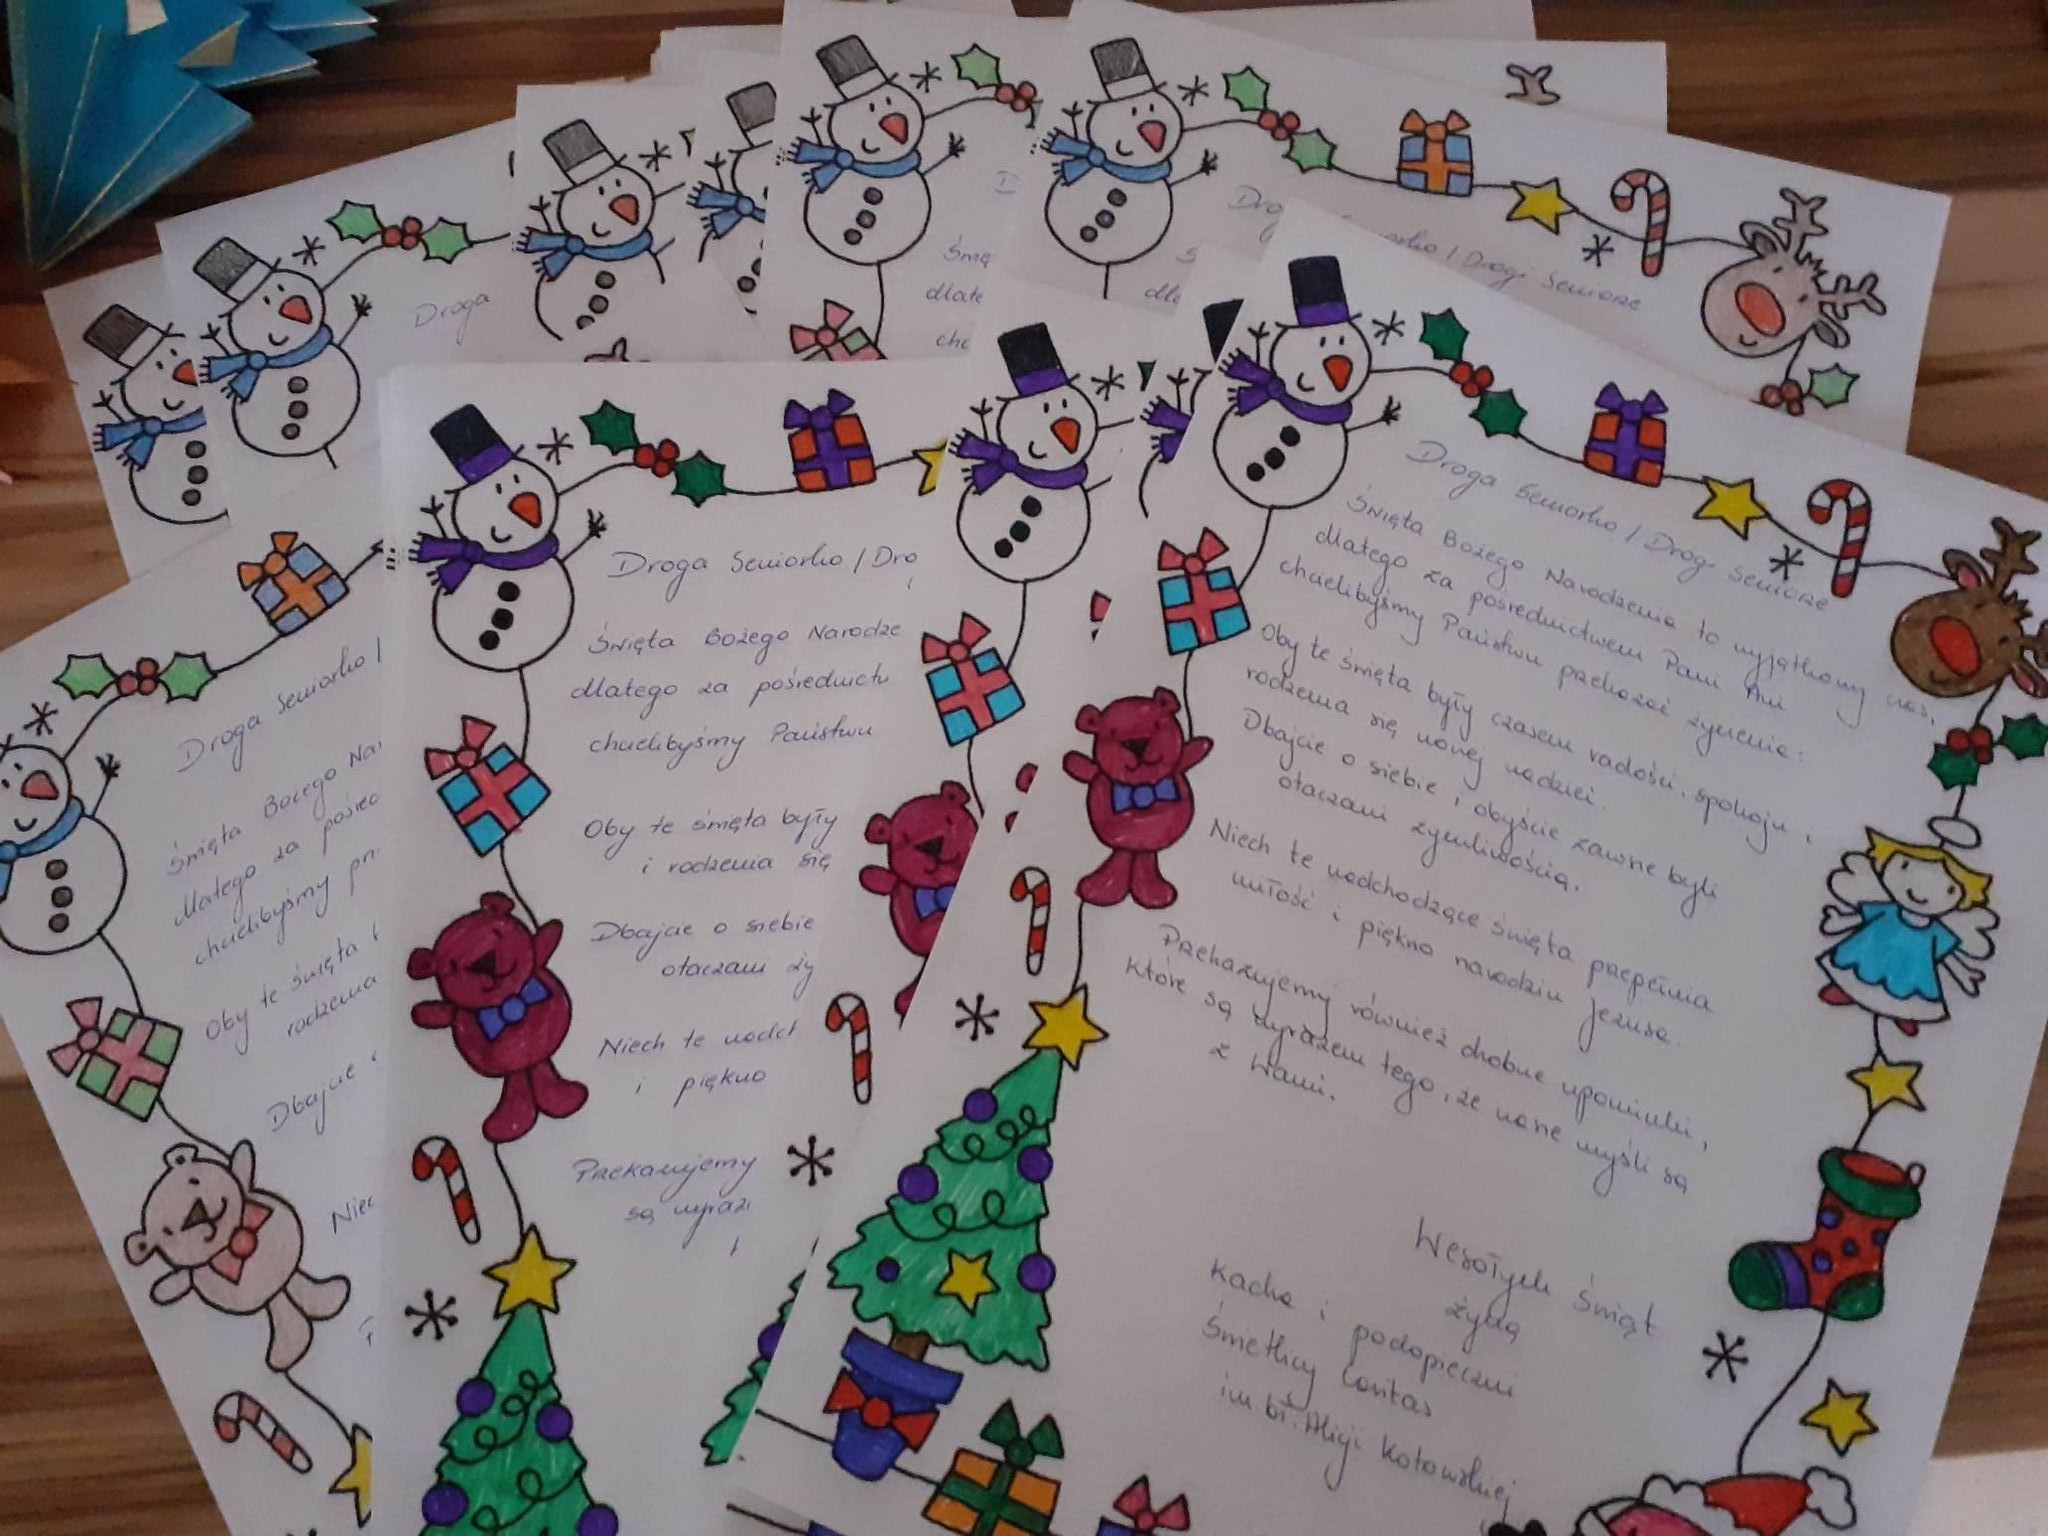 Droga Seniorko / Drogi Seniorze
Święta Bożego Narodzenia to wyjątkowy czas,
dlatego za pośrednictwem Pani Ani
chcielibyśmy Państwu przekazać życzenia:
Oby te święta były czasem radości, spokoju i
rodzenia się nowej nadziei.
Dbajcie o siebie i obyście zawsze byli
otaczani życzliwością.
Niech te nadchodzące święta przepełnia
miłość i piękno narodzin Jezusa.
Przekazujemy również drobne upominki,
które są wyrazem tego, że nasze myśli są
z Wami.
Wesołych Świąt
życzą
Kacha i podopieczni
Świetlicy Caritas
im bł. Alicji Kotowskiej
Droga Seniorko / Dro
Święta Bożego Narodze
dlatego za pośrednictw
chcielibyśmy Państwu
Oby te święta były
i rodzenia się
Dbajcie o siebie
otaczani ży
Niech te nadch
i piękno
Przekazujemy
są wyraz
Droga Seniorko /
Święta Bożego Nar
dlatego za pośred
chcielibyśmy prz
Oby te święta
rodzenia
Dbajcie
Niec
Droga
Świę
dlate
chc
Drogi Seniorze